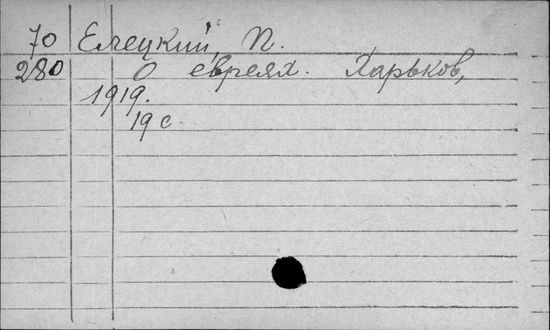 70 Елецкий, П.
280 О евреях. Харьков,
1919.
19 с.